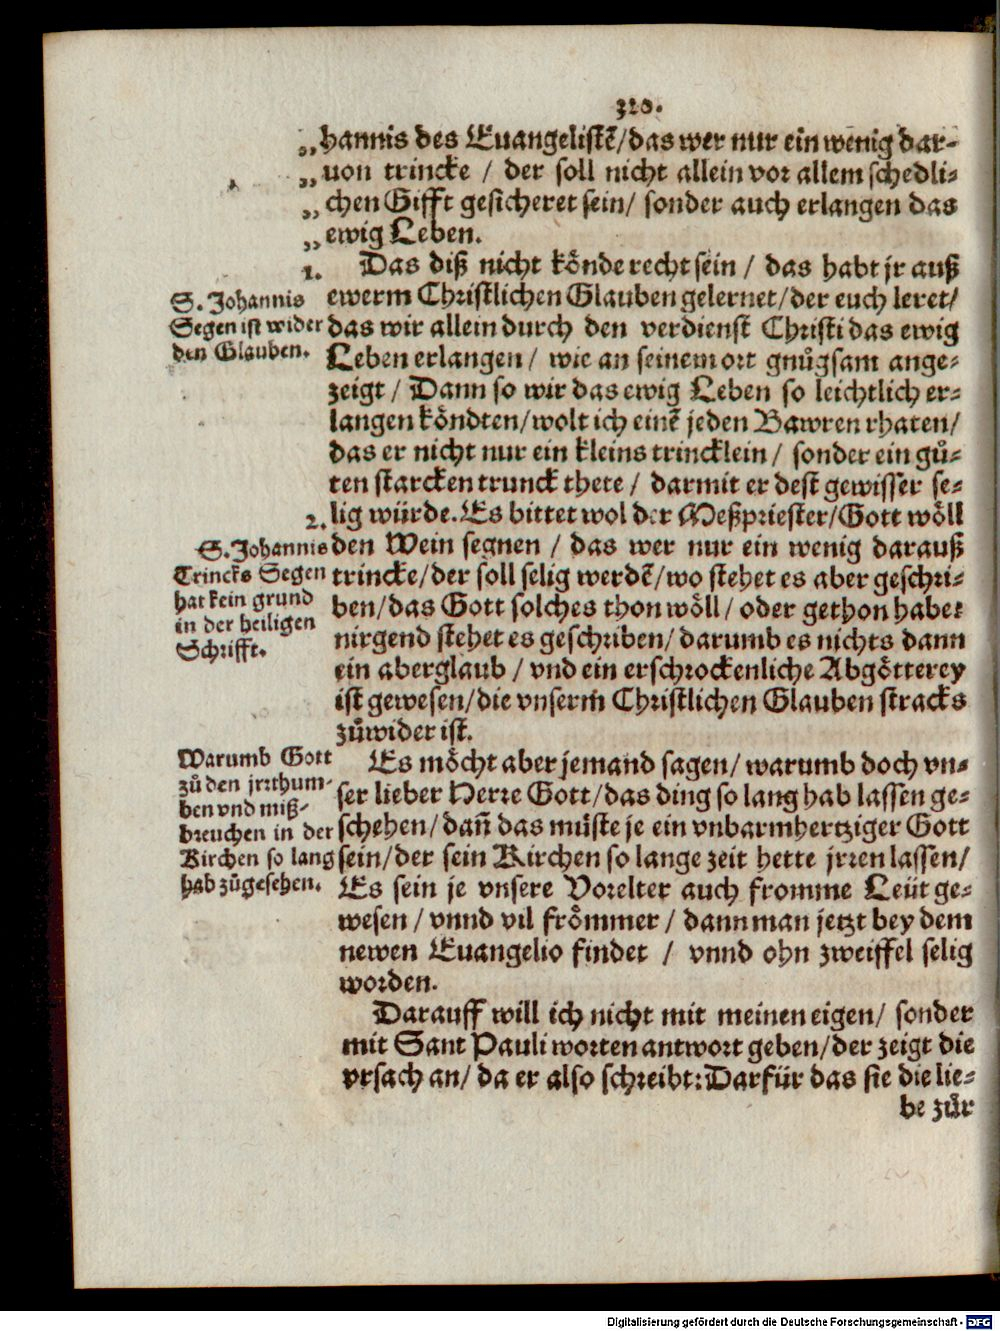 320.
„hannis des Euangelistē/das wer nur ein wenig dar-
„uon trincke / der soll nicht allein vor allem schedli-
„chen Gifft gesicheret sein/ sonder auch erlangen das
„ewig Leben.
1. Das diß nicht könde recht sein / das habt jr auß
S. Johannis
Segen ist wider
den Glauben.
ewerm Christlichen Glauben gelernet/der euch leret/
das wir allein durch den verdienst Christi das ewig
Leben erlangen / wie an seinem ort gnůgsam ange-
zeigt / Dann so wir das ewig Leben so leichtlich er-
langen köndten/wolt ich einē jeden Bawren rhaten/
das er nicht nur ein kleins trincklein / sonder ein gů-
ten starcken trunck thete / darmit er dest gewisser se-
2. lig würde. Es bittet wol der Meßpriester/Gott wöll
S. Johannis
Trincks Segen
hat kein grund
in der heiligen
Schrifft.
den Wein segnen / das wer nur ein wenig darauß
trincke/der soll selig werdē/wo stehet es aber geschri-
ben/das Gott solches thon wöll / oder gethon habe?
nirgend stehet es geschriben/darumb es nichts dann
ein aberglaub / vnd ein erschrockenliche Abgötterey
ist gewesen/die vnserm Christlichen Glauben stracks
zůwider ist.
Warumb Gott
zů den jrrthum-
ben vnd miß-
breuchen in der
Kirchen so lang
hab zůgesehen.
Es möcht aber jemand sagen/ warumb doch vn-
ser lieber Herre Gott/das ding so lang hab lassen ge-
schehen/dañ das müste je ein vnbarmhertziger Gott
sein/der sein Kirchen so lange zeit hette jrren lassen/
Es sein je vnsere Vorelter auch fromme Leüt ge-
wesen / vnnd vil frömmer / dann man jetzt bey dem
newen Euangelio findet / vnnd ohn zweiffel selig
worden.
Darauff will ich nicht mit meinen eigen/ sonder
mit Sant Pauli worten antwort geben/der zeigt die
vrsach an/ da er also schreibt: Darfür das sie die lie-
be zůr
Digitalisierung gefördert durch die Deutsche Forschungsgemeinschaft - DFG